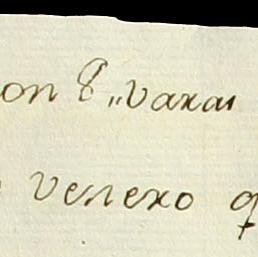 on 8 ,, varas
venero q